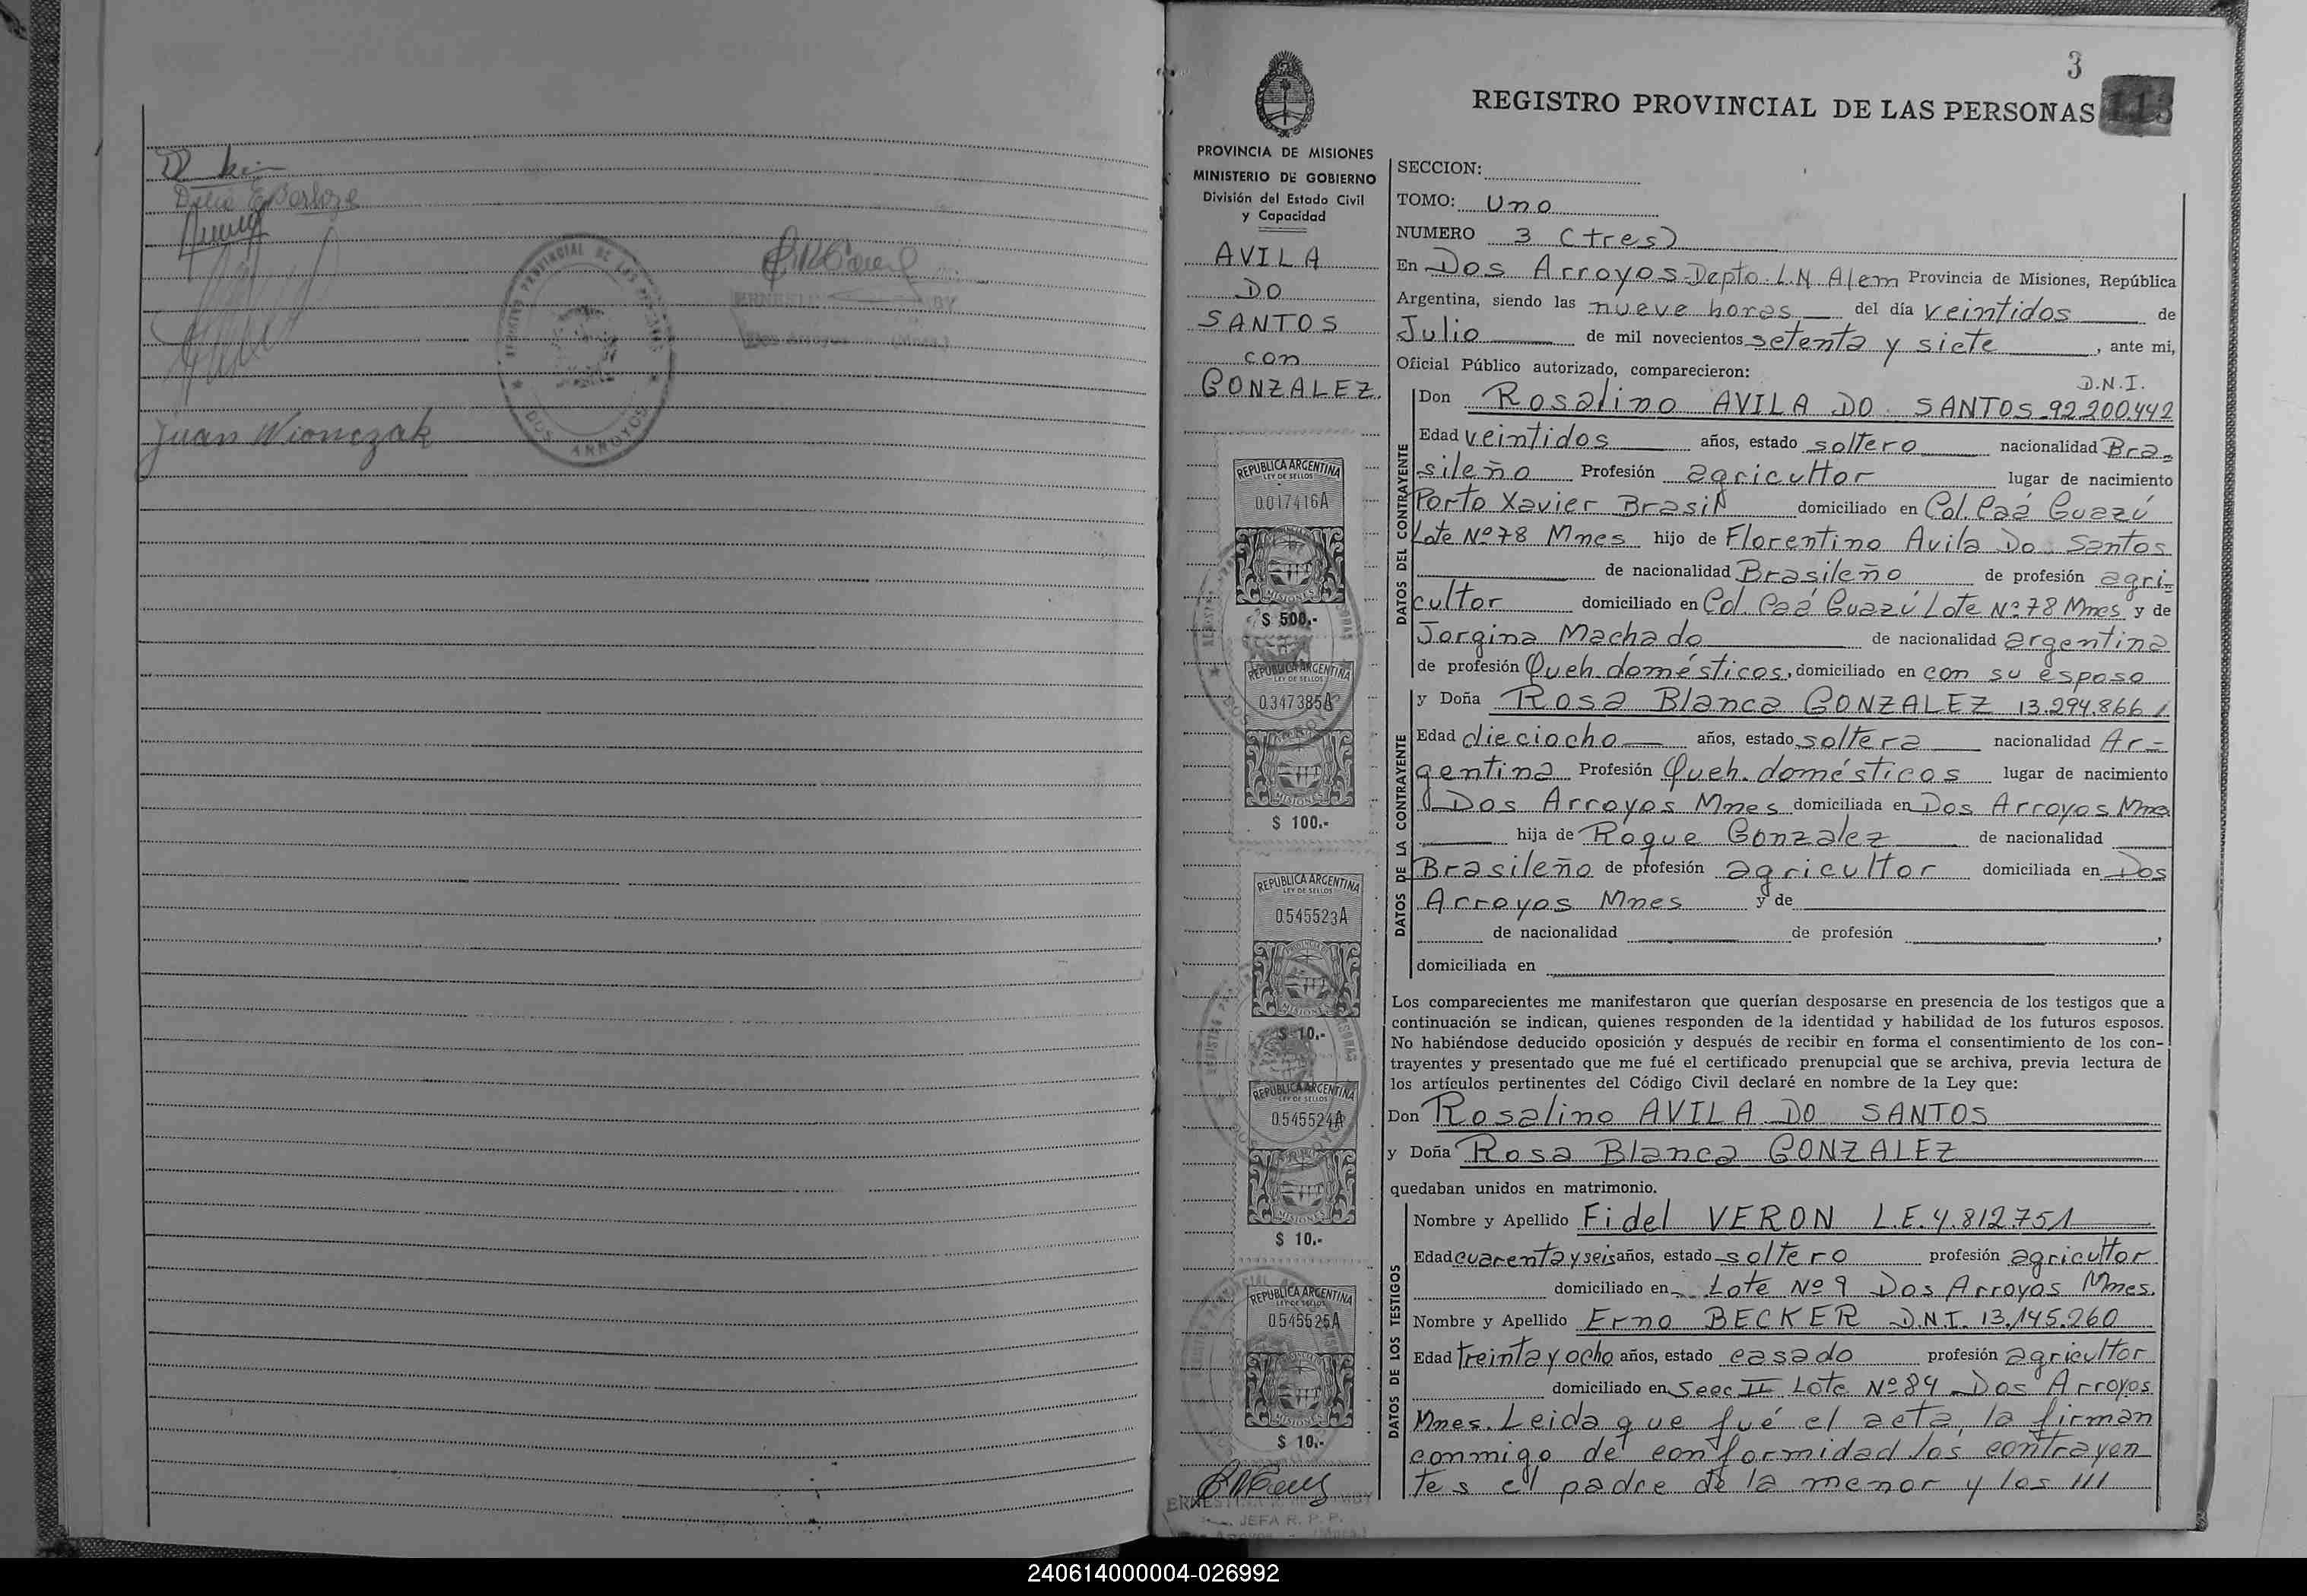 Juan Wionczak
REGISTRO PROVINCIAL DE LAS PERSONAS
DOS ARROYOS
3
REGISTRO PROVINCIAL DE LAS PERSONAS
PROVINCIA DE MISIONES
MINISTERIO DE GOBIERNO
División del Estado Civil
y Capacidad
AVILA
DO
SANTOS
con
GONZALEZ.
REPUBLICA ARGENTINA
LEY DE SELLOS
0.017416A
MISIONES
$ 500,-
REPUBLICA ARGENTINA
LEY DE SELLOS
0.347385A
MISIONES
$ 100.-
REPUBLICA ARGENTINA
LEY DE SELLOS
0.545523A
MISIONES
$ 10.-
REPUBLICA ARGENTINA
LEY DE SELLOS
0.545524A
MISIONES
$ 10.-
REPUBLICA ARGENTINA
LEY DE SELLOS
0.545525A
MISIONES
$ 10.-
JEFA R. P. P.
SECCION:
TOMO: Uno
NUMERO 3 (tres)
En Dos Arroyos-Depto. L.N. Alem Provincia de Misiones, República
Argentina, siendo las nueve horas del día veintidos de
Julio de mil novecientos setenta y siete, ante mi,
Oficial Público autorizado, comparecieron:
D.N.I.
Don Rosalino AVILA DO SANTOS 92.200.442
Edad veintidos años, estado soltero nacionalidad Bra=
sileño Profesión agricultor lugar de nacimiento
Porto Xavier Brasil domiciliado en Col. Caá Guazú
Lote Nº 78 Mnes hijo de Florentino Avila Do Santos
de nacionalidad Brasileño de profesión agri=
cultor domiciliado en Col. Caá Guazú Lote Nº 78 Mnes y de
Jorgina Machado de nacionalidad argentina
de profesión Queh. domésticos, domiciliado en con su esposo
DATOS DEL CONTRAYENTE
y Doña Rosa Blanca GONZALEZ 13.294.866
Edad dieciocho años, estado soltera nacionalidad Ar=
gentina Profesión Queh. domésticos lugar de nacimiento
Dos Arroyos Mnes domiciliada en Dos Arroyos Mnes
hija de Roque Gonzalez de nacionalidad
Brasileño de profesión agricultor domiciliada en Dos
Arroyos Mnes y de
de nacionalidad de profesión ,
domiciliada en
DATOS DE LA CONTRAYENTE
Los comparecientes me manifestaron que querían desposarse en presencia de los testigos que a
continuación se indican, quienes responden de la identidad y habilidad de los futuros esposos.
No habiéndose deducido oposición y después de recibir en forma el consentimiento de los con-
trayentes y presentado que me fué el certificado prenupcial que se archiva, previa lectura de
los artículos pertinentes del Código Civil declaré en nombre de la Ley que:
Don Rosalino AVILA DO SANTOS
y Doña Rosa Blanca GONZALEZ
quedaban unidos en matrimonio.
Nombre y Apellido Fidel VERON L.E. 4.812.751
Edad cuarenta y seis años, estado soltero profesión agricultor
domiciliado en Lote Nº 9 Dos Arroyos Mnes.
Nombre y Apellido Erno BECKER D.N.I. 13.145.260
Edad treinta y ocho años, estado casado profesión agricultor
domiciliado en Secc II Lote Nº 84 Dos Arroyos
DATOS DE LOS TESTIGOS
Mnes. Leida que fué el acta, la firman
conmigo de conformidad los contrayen
tes el padre de la menor y los ///
240614000004-026992